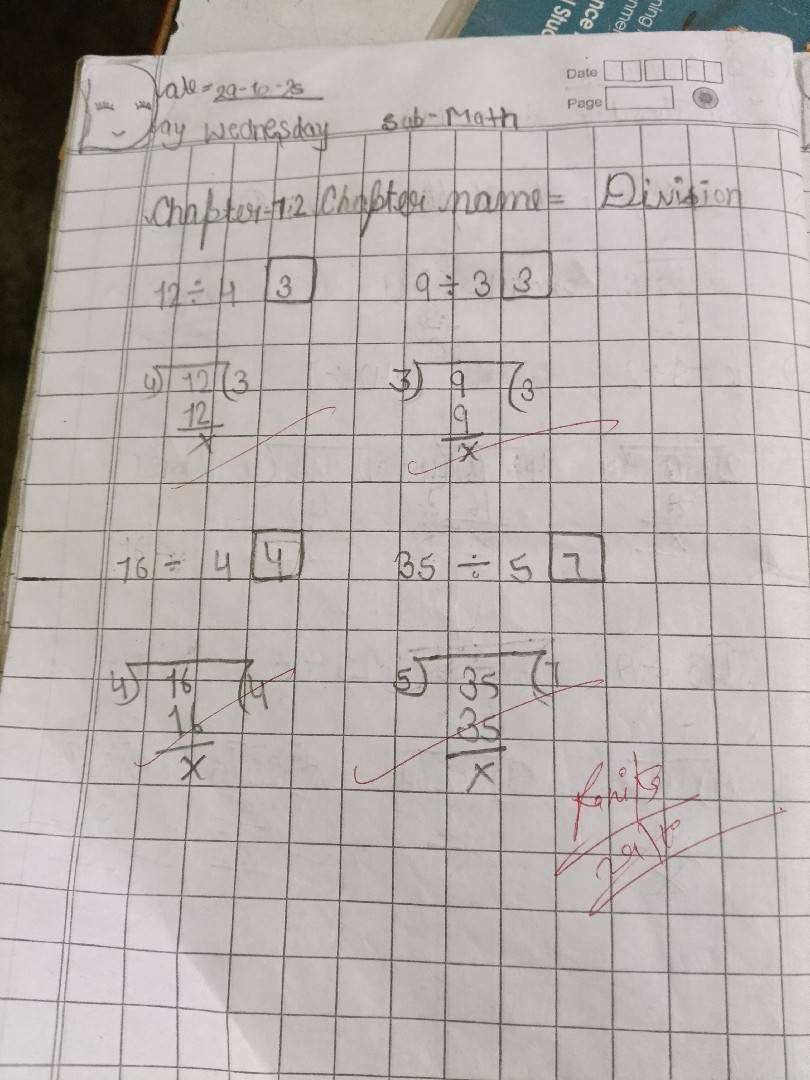 Date = 29-10-25
Date
Page
Day Wednesday Sub-Math
Chapter-12 Chapter name = Division
12 ÷ 4 3 9 ÷ 3 3
4) 12 (3 3) 9 (3
12 9
x x
16 ÷ 4 4 35 ÷ 5 7
4) 16 (4 5) 35 (7
16 35
x x